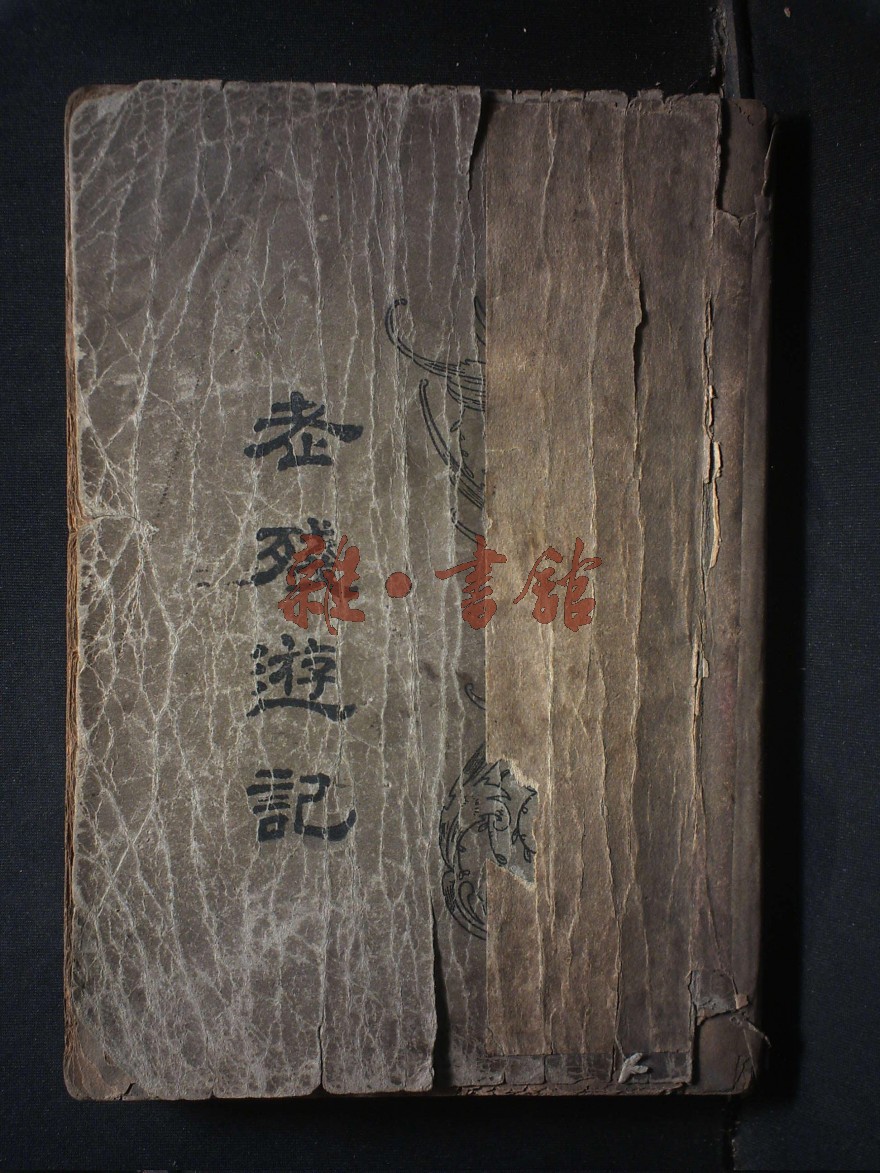 老殘遊記
雜·書館